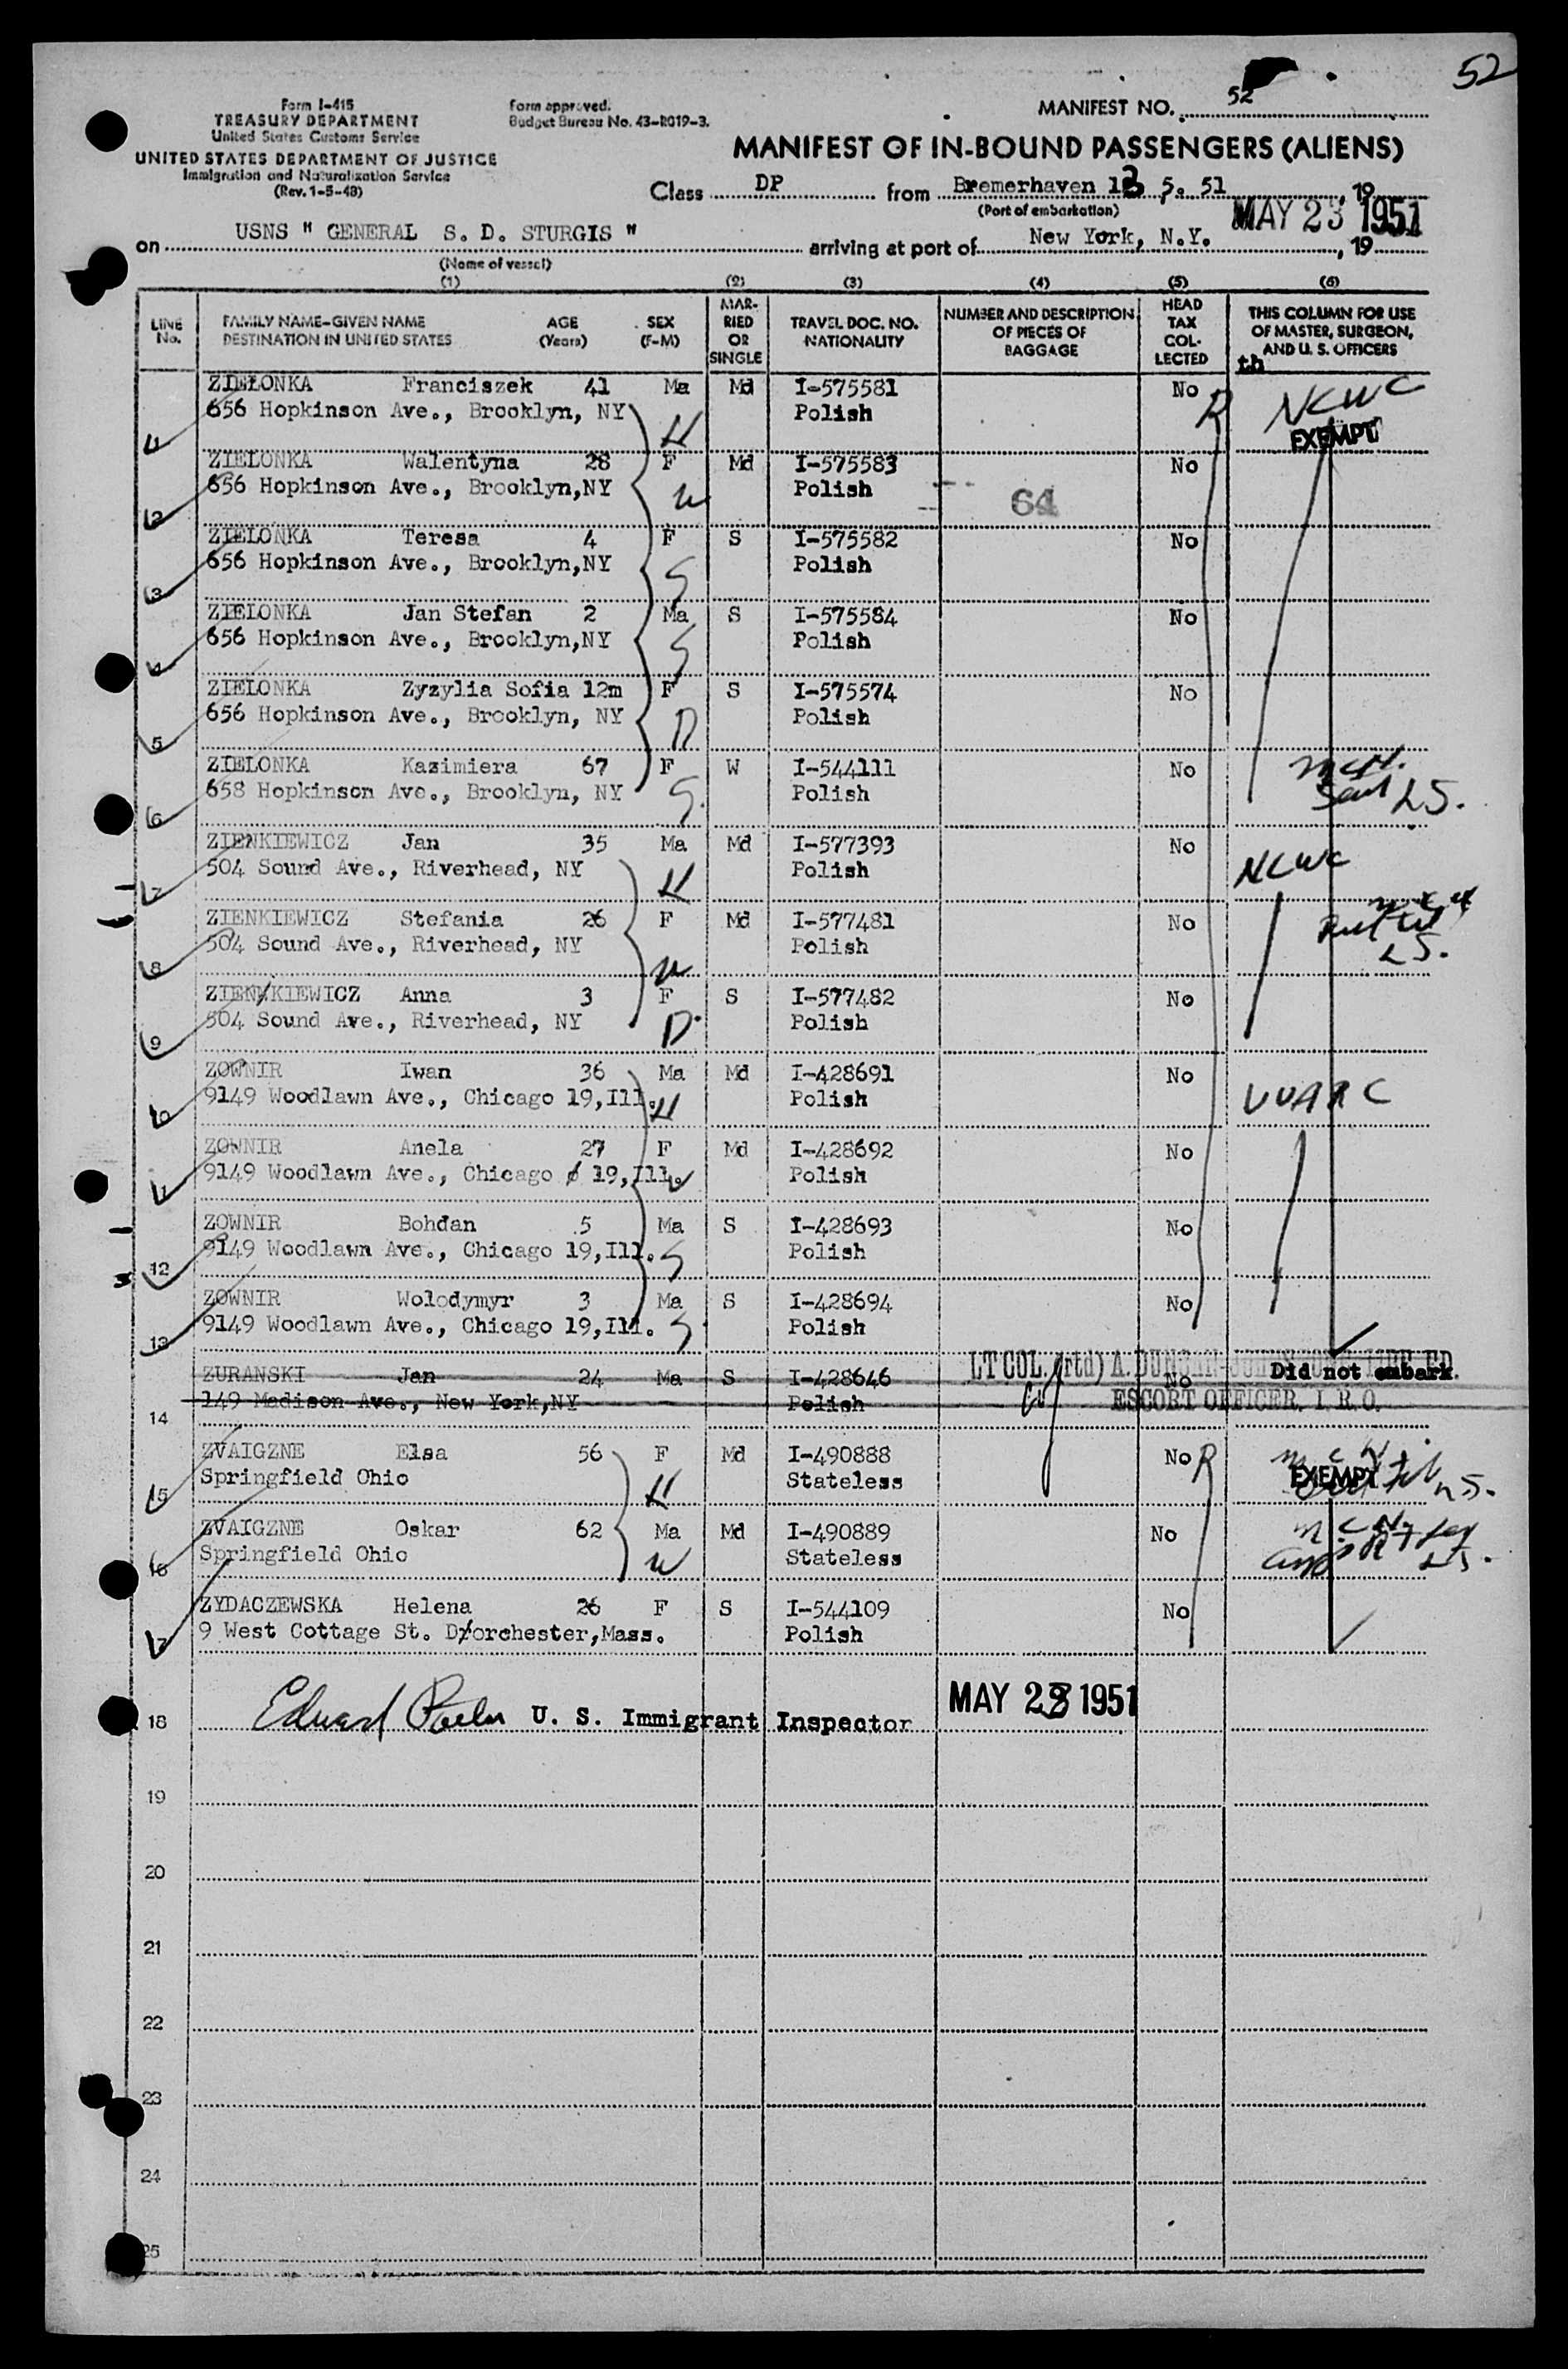 52
Form I-415
TREASURY DEPARTMENT
United States Customs Service
UNITED STATES DEPARTMENT OF JUSTICE
Immigration and Naturalization Service
(Rev. 1-5-48)
Form approved.
Budget Bureau No. 43-R019-3.
MANIFEST NO. 52
MANIFEST OF IN-BOUND PASSENGERS (ALIENS)
Class DP from Bremerhaven 13 5. 51, 19
(Port of embarkation)
MAY 23 1951
on USNS " GENERAL S. D. STURGIS " arriving at port of New York, N.Y., 19
(Name of vessel)
(1) (2) (3) (4) (5) (6)
LINE No. FAMILY NAME-GIVEN NAME DESTINATION IN UNITED STATES AGE (Years) SEX (F-M) MARRIED OR SINGLE TRAVEL DOC. NO. NATIONALITY NUMBER AND DESCRIPTION OF PIECES OF BAGGAGE HEAD TAX COLLECTED THIS COLUMN FOR USE OF MASTER, SURGEON, AND U. S. OFFICERS
th
ZIELONKA Franciszek 41 Ma Md I-575581 No R NCWC
1 656 Hopkinson Ave., Brooklyn, NY H Polish EXEMPT
ZIELONKA Walentyna 28 F Md I-575583 No
2 656 Hopkinson Ave., Brooklyn,NY W Polish 64
ZIELONKA Teresa 4 F S I-575582 No
3 656 Hopkinson Ave., Brooklyn,NY S Polish
ZIELONKA Jan Stefan 2 Ma S I-575584 No
4 656 Hopkinson Ave., Brooklyn,NY S Polish
ZIELONKA Zyzylia Sofia 12m F S I-575574 No
5 656 Hopkinson Ave., Brooklyn, NY D Polish
ZIELONKA Kazimiera 67 F W I-544111 No
6 658 Hopkinson Ave., Brooklyn, NY S. Polish LS.
ZIENKIEWICZ Jan 35 Ma Md I-577393 No
7 504 Sound Ave., Riverhead, NY H Polish NCWC
ZIENKIEWICZ Stefania 26 F Md I-577481 No
8 504 Sound Ave., Riverhead, NY W Polish LS.
ZIENKIEWICZ Anna 3 F S I-577482 No
9 504 Sound Ave., Riverhead, NY D Polish
ZOWNIR Iwan 36 Ma Md I-428691 No
10 9149 Woodlawn Ave., Chicago 19,Ill. H Polish UUARC
ZOWNIR Anela 27 F Md I-428692 No
11 9149 Woodlawn Ave., Chicago 19,Ill. W Polish
ZOWNIR Bohdan 5 Ma S I-428693 No
12 9149 Woodlawn Ave., Chicago 19,Ill. S Polish
ZOWNIR Wolodymyr 3 Ma S I-428694 No
13 9149 Woodlawn Ave., Chicago 19,Ill. S Polish
ZURANSKI Jan 24 Ma S I-428646 LT COL. (rtd) A. No Did not embark.
14 149 Madison Ave., New York,NY Polish ESCORT OFFICER. I. R. O.
ZVAIGZNE Elsa 56 F Md I-490888 No R
15 Springfield Ohio H Stateless EXEMPT
ZVAIGZNE Oskar 62 Ma Md I-490889 No
16 Springfield Ohio W Stateless LS.
ZYDACZEWSKA Helena 26 F S I-544109 No
17 9 West Cottage St. Dorchester,Mass. Polish
18 Edward U. S. Immigrant Inspector MAY 23 1951
19
20
21
22
23
24
25